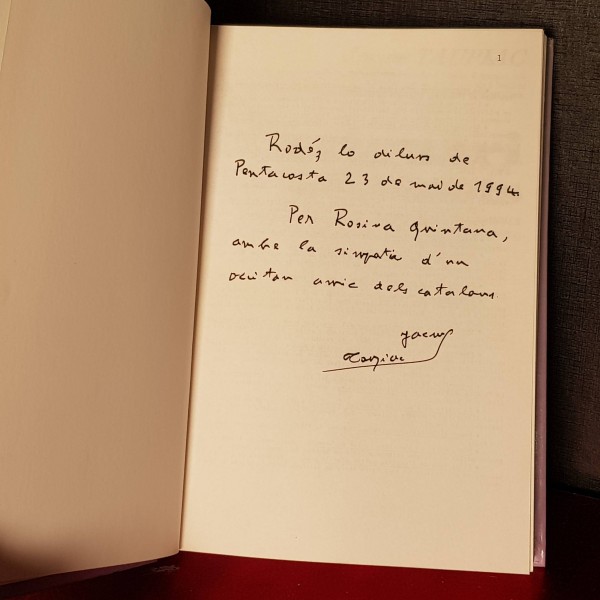 1
Rodés lo diluns de
Pentacosta 23 de mai de 1994
Per Rosina Quintana,
ambe la simpatia d'un
occitan amic dels catalans.
Jacme